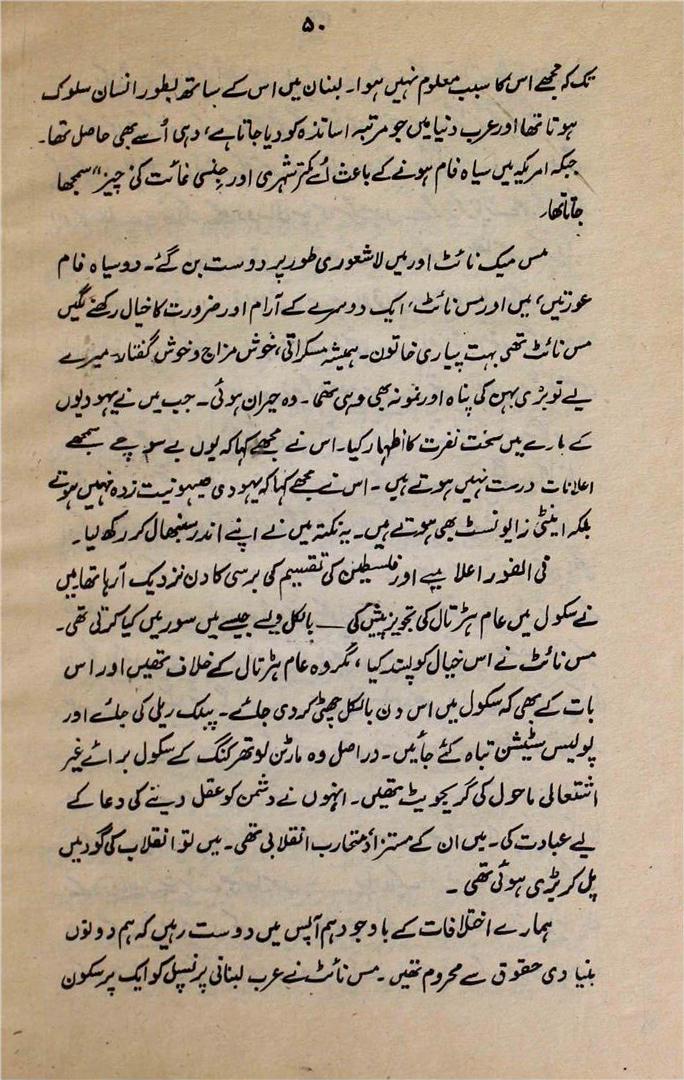 ۵۰
تک کہ مجھے اس کا سبب معلوم نہیں ہوا۔ لبنان میں اس کے ساتھ بطور انسان سلوک
ہوتا تھا اور عرب دنیا میں جو مرتبہ اساتذہ کو دیا جاتا ہے، وہی اُسے بھی حاصل تھا۔
جبکہ امریکہ میں سیاہ فام ہونے کے باعث اُسے کمتر شہری اور جنسی غائت کی چیز" سمجھا
جاتا تھا۔
مس میک نائٹ اور میں لاشعوری طور پر دوست بن گئے۔ دو سیاہ فام
عورتیں، میں اور مس نائٹ، ایک دوسرے کے آرام اور ضرورت کا خیال رکھنے لگیں
مس نائٹ تھی بہت پیاری خاتون۔ ہمیشہ مسکراتی، خوش مزاج و خوش گفتار۔ میرے
لیے تو بڑی بہن کی پناہ اور نمونہ بھی وہی تھی۔ وہ حیران ہوئی۔ جب میں نے یہودیوں
کے بارے میں سخت نفرت کا اظہار کیا۔ اس نے مجھے کہا کہ یوں بے سوچے سمجھے
اعلانات درست نہیں ہوتے ہیں۔ اس نے مجھے کہا کہ یہودی صیہونیت زدہ نہیں ہوتے
بلکہ اینٹی زایونسٹ بھی ہوتے ہیں۔ یہ نکتہ میں نے اپنے اندر سنبھال کر رکھ لیا۔
فی الفور اعلامیے اور فلسطین کی تقسیم کی برسی کا دن نزدیک آ رہا تھا میں
نے سکول میں عام ہڑتال کی تجویز پیش کی — بالکل ویسے جیسے میں سور میں کیا کرتی تھی۔
مس نائٹ نے اس خیال کو پسند کیا، مگر وہ عام ہڑتال کے خلاف تھیں اور اس
بات کے بھی کہ سکول میں اس دن بالکل چھٹی کر دی جائے۔ پبلک ریلی کی جائے اور
پولیس سٹیشن تباہ کئے جائیں۔ دراصل وہ مارٹن لوتھر کنگ کے سکول برائے غیر
اشتعالی ماحول کی گریجویٹ تھیں۔ انہوں نے دشمن کو عقل دینے کی دعا کے
لیے عبادت کی۔ میں ان کے مستزاد متحارب انقلابی تھی۔ میں تو انقلاب کی گود میں
پل کر بڑی ہوئی تھی۔
ہمارے اختلافات کے باوجود ہم آپس میں دوست رہیں کہ ہم دونوں
بنیادی حقوق سے محروم تھیں۔ مس نائٹ نے عرب لبنانی پرنسپل کو ایک پرسکون